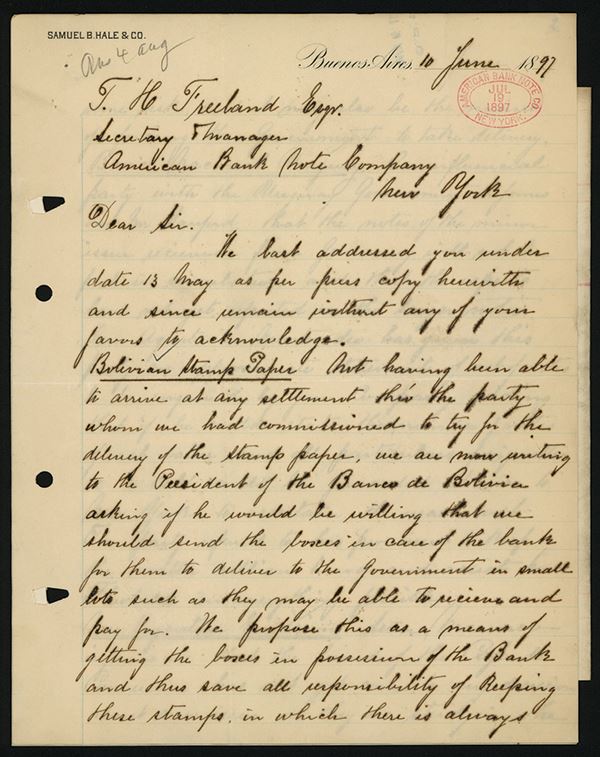 SAMUEL B. HALE & CO.
Ans 4 aug
Buenos Aires, 10 June 1897
AMERICAN BANK NOTE CO.
JUL
19
1897
NEW YORK.
T. H. Freeland Esqr.
Secretary & Manager
American Bank Note Company
New York
Dear Sir.
We last addressed you under
date 13 May as per press copy herewith
and since remain without any of your
favors to acknowledge.
Bolivian Stamp Paper Not having been able
to arrive at any settlement thro' the party
whom we had commissioned to try for the
delivery of the stamp paper, we are now writing
to the President of the Banco de Bolivia
asking if he would be willing that we
should send the boxes in care of the bank
for them to deliver to the Government in small
lots such as they may be able to recieve and
pay for. We propose this as a means of
getting the boxes in possession of the Bank
and thus save all responsibility of keeping
these stamps, in which there is always